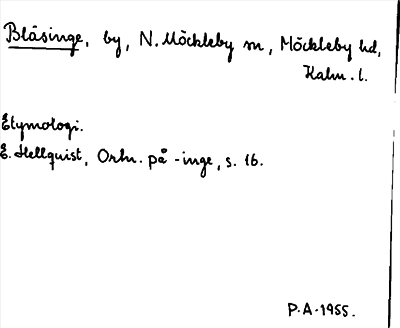 Bläsinge, by, N. Möckleby sn, Möckleby hd,
Kalm. l.
Etymologi.
E. Hellquist, Ortn. på -inge, s. 16.
P.A. 1955.